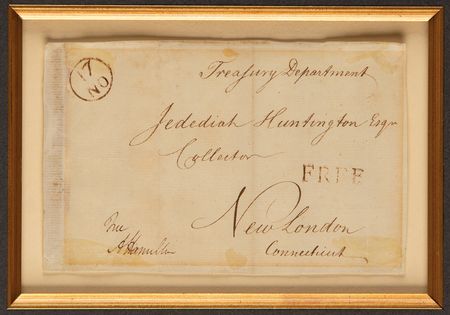 17
NO
Treasury Department
Jedediah Huntington Esqr
Collector
FREE
New London
Connecticut
Free
A Hamilton